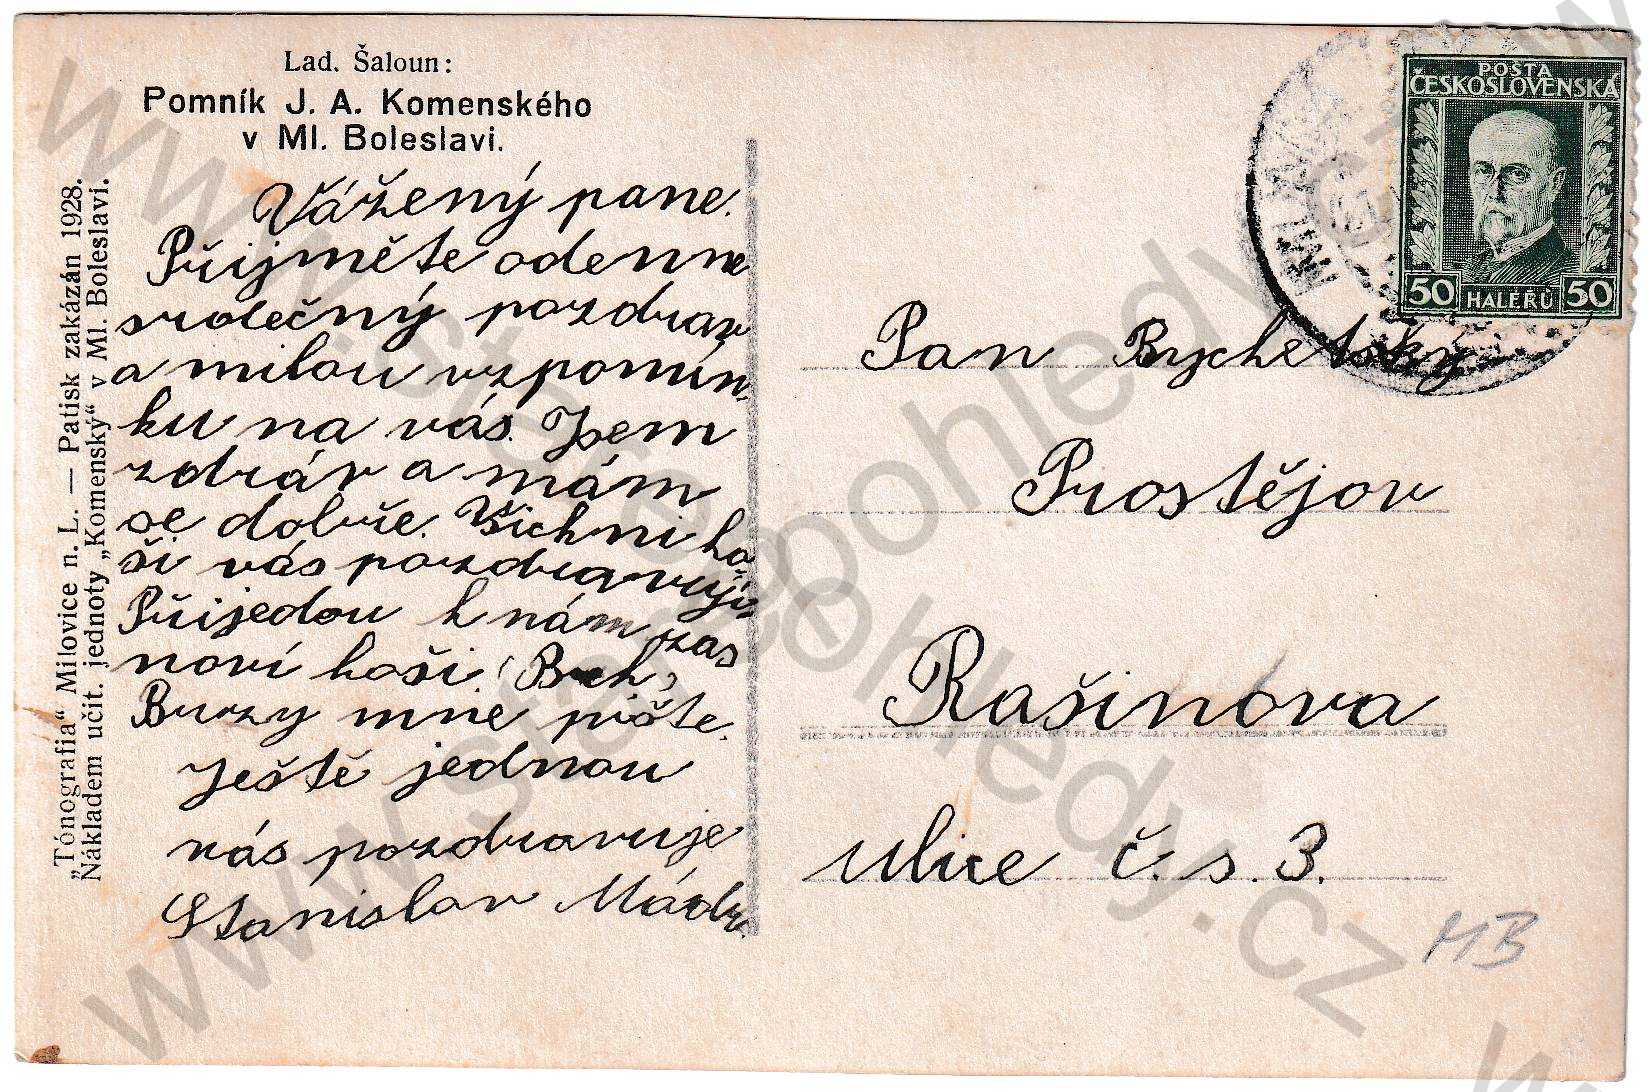 Lad. Šaloun:
Pomník J. A. Komenského
v Ml. Boleslavi.
Vážený pane.
Přijměte odemne
srdečný pozdrav
a milou vzpomín-
ku na vás. Jsem
zdráv a mám
se dobře. Všichni ho-
ši vás pozdravují.
Přijedou k nám zas
noví hoši.
Brzy mne pište.
Ještě jednou
vás pozdravuje
Stanislav Mádr.
„Tónografia“ Milovice n. L. — Patisk zakázán 1928.
Nákladem učit. jednoty „Komenský“ v Ml. Boleslavi.
POŠTA
ČESKOSLOVENSKÁ
50 HALÉŘŮ 50
Pan Bychetsky
Prostějov
Rašinova
ulice č. s. 3.
MB
www.starepohledy.cz
www.starepohledy.cz